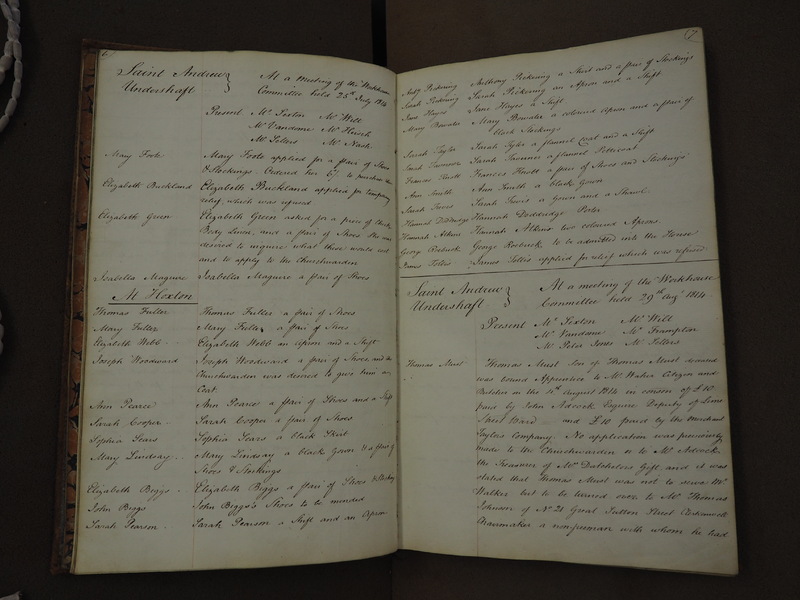 6
Saint Andrew } At a Meeting of the Workhouse
Undershaft Committee held 25th July 1814
Present Mr Sexton Mr Will
Mr Vandome Mr
Mr Sellers Mr Nash
Mary Foote Mary Foote applied for a pair of Shoes
& Stockings. Ordered her to purchase them
Elizabeth Buckland Elizabeth Buckland applied for temporary
relief which was refused
Elizabeth Green Elizabeth Green asked for a piece of
Body Linen, and a pair of Shoes She was
desired to inquire what these would cost
and to apply to the Churchwarden
Isabella Maguire Isabella Maguire a pair of Shoes
At Hoxton
Thomas Fuller Thomas Fuller a pair of Shoes
Mary Fuller Mary Fuller a pair of Shoes
Elizabeth Webb Elizabeth Webb an Apron and a Shift
Joseph Woodward Joseph Woodward a pair of Shoes and the
Churchwarden was desired to give him a
Coat
Ann Pearce Ann Pearce a pair of Shoes and a Shift
Sarah Cooper Sarah Cooper a pair of Shoes
Sophia Sears Sophia Sears a black Skirt
Mary Lindsay Mary Lindsay a black Gown & a pair of
Shoes & Stockings
Elizabeth Biggs Elizabeth Biggs a pair of Shoes & Stockings
John Biggs John Biggs's Shoes to be mended
Sarah Pearson Sarah Pearson a Shift and an Apron
7
Anty Pickering Anthony Pickering a Shirt and a pair of Stockings
Sarah Pickering Sarah Pickering an Apron and a Shift
Jane Hayes Jane Hayes a Shift
Mary Bowater Mary Bowater a coloured Apron and a pair of
black Stockings
Sarah Tyler Sarah Tyler a flannel coat and a Shift
Sarah Sarah a flannel Petticoat
Frances Knott Frances Knott a pair of Shoes and Stockings
Ann Smith Ann Smith a black Gown
Sarah Sarah a Gown and a Shawl
Hannah Doddridge Hannah Doddridge Porter
Hannah Atkins Hannah Atkins two coloured Aprons
George Roebuck George Roebuck to be admitted into the House
James James applied for relief which was refused
Saint Andrew } At a meeting of the Workhouse
Undershaft Committee held 29th Augt 1814
Present Mr Sexton Mr Will
Mr Vandome Mr Frampton
Mr Peter Jones Mr Sellers
Thomas Must Thomas Must son of Thomas Must deceased
was bound Apprentice to Mr Walker Citizen and
Butcher on the August 1814 in conson of £10
paid by John Adcock Esquire Deputy of Lime
Street Ward and £10 paid by the Merchant
Taylors Company. No application was previously
made to the Churchwarden or to Mr Adcock
the Treasurer of Mrs Gift and it was
stated that Thomas Must was not to serve Mr
Walker but to be turned over to Mr Thomas
Johnson of No 21 Great Sutton Street Clerkenwell
Chairmaker a nonfreeman with whom he had